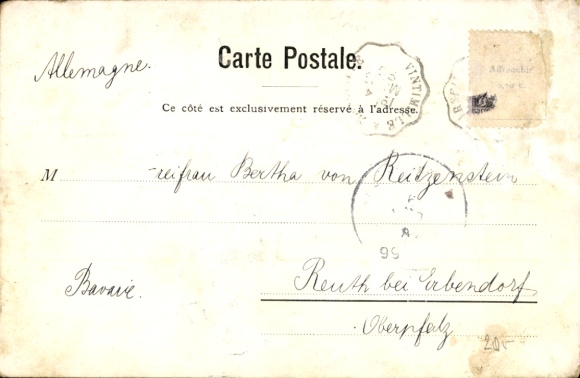 Carte Postale.
Allemagne.
VINTIMILLE
Ce côté est exclusivement réservé à l'adresse.
M reifrau Bertha von Reitzenstein
96
Bavarie.
Reuth bei Erbendorf
Oberpfalz
20.-